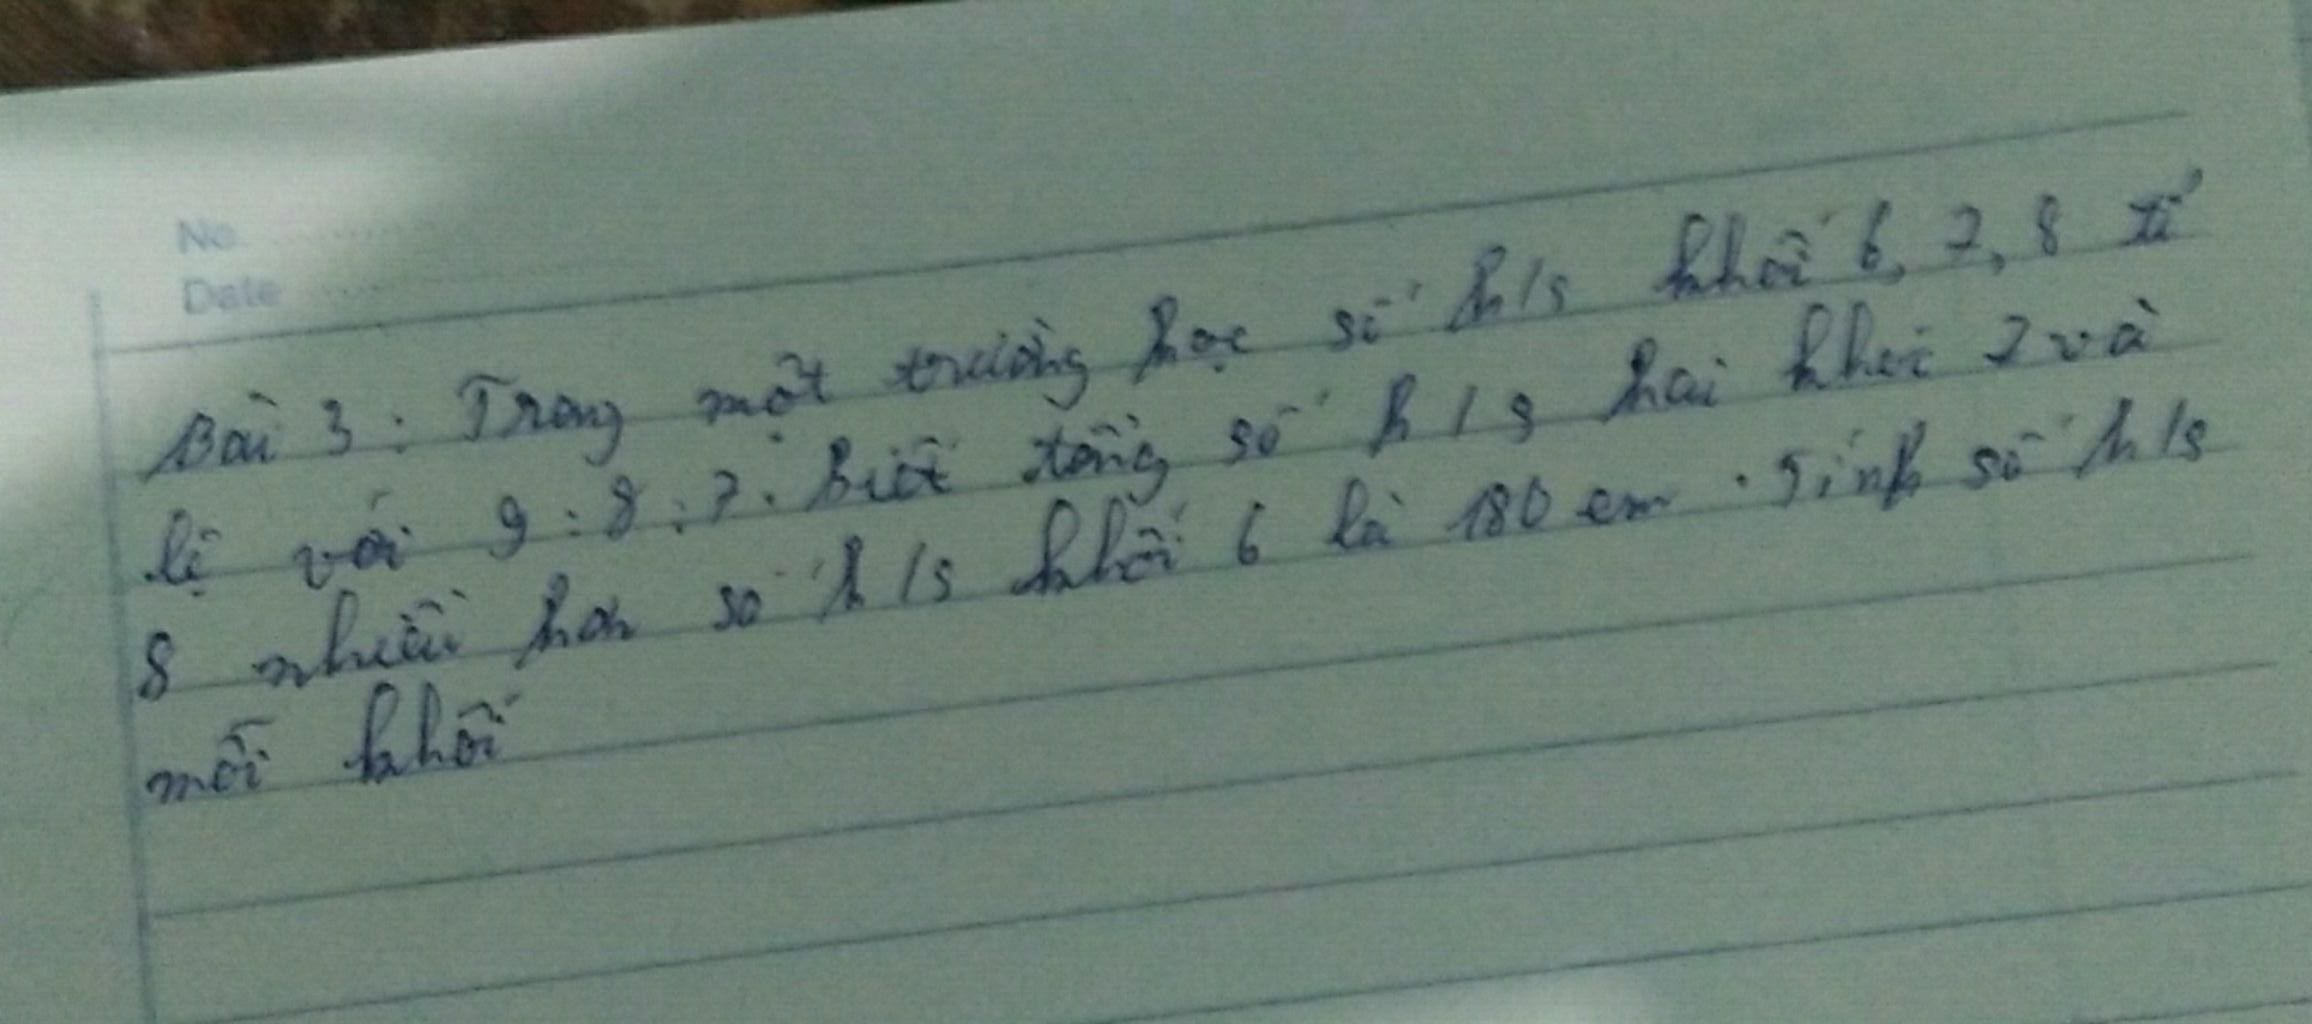 No
Date
Bài 3: Trong một trường học số h/s khối 6, 7, 8 tỉ
lệ với 9:8:7. Biết tổng số h/s hai khối 7 và
8 nhiều hơn số h/s khối 6 là 180 em. Tính số h/s
mỗi khối